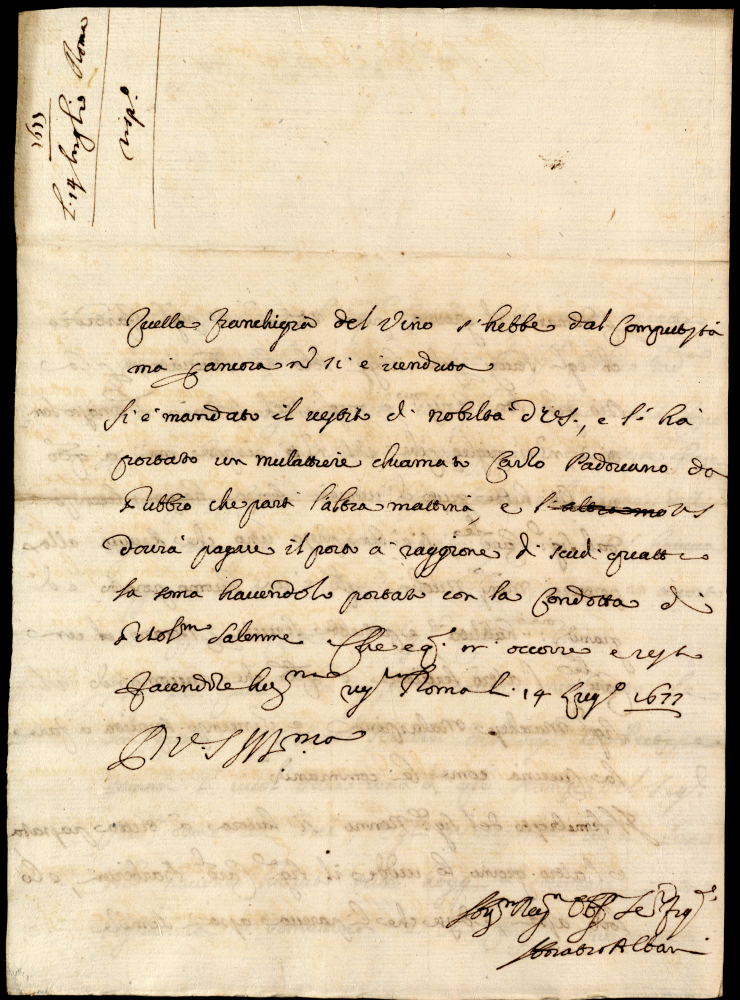 1677
L. 14 luglio Roma
risp.
Quella franchigia del Vino s'hebbe dal Computista
ma p ancora nō si è venduta
Si è mandato il vestito di nobiltà di VS., e l'ha
portato un mulattiere chiamato Carlo Padovano da
Gubbio che partì l'altra mattina, e VS
dovrà pagare il porto à raggione di scudi quattro
la soma havendolo portato con la Condotta di
Salenne Che è q.to m'occorre e resto
facendole hum.ma Roma li 14 lug.o 1677
D V. S Ill.ma
Horatio Albani